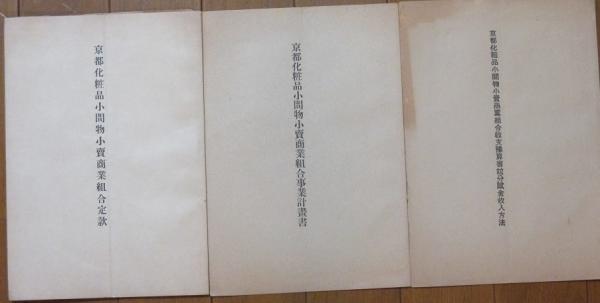 京都化粧品小間物小賣商業組合定款
京都化粧品小間物小賣商業組合事業計畫書
京都化粧品小間物小賣商業組合收支豫算書竝分賦金收入方法